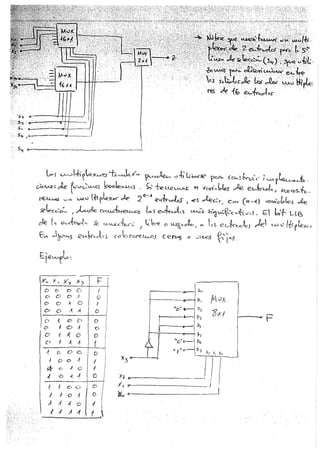 MUX
16x1
MUX
2x1
Z
MUX
16x1
S3
S2
S1
S0
S4
→ Nótese que necesitamos un multi-
plexor de 2 entradas para la 5ª
línea de selección (S4), que utili-
zamos para discriminar entre
las salidas de los dos multiple-
xores de 16 entradas
Los multiplexores también pueden utilizarse para construir implementa-
ciones de funciones booleanas. Si tenemos n variables de entrada, necesita-
remos un multiplexor de 2ⁿ⁻¹ entradas, es decir, con (n-1) variables de
selección, donde conectaremos las entradas más significativas. El bit LSB
de la entrada se conectará, libre o negado, a las entradas del multiplexor
En algunas entradas colocaremos ceros o unos fijos
Ejemplo:
X0 X1 X2 X3 F
0 0 0 0 0
0 0 0 1
0 0 1 0
0 0 1 1 0
0 1 0 0
0 1 0 1 0
0 1 1 0 0
0 1 1 1 1
1 0 0 0 0
1 0 0 1
1 0 1 0
1 0 1 1 0
1 1 0 0
1 1 0 1
1 1 1 0 1
1 1 1 1 1
MUX
8x1
F
"0"
"0"
"1"
X3
X2
X1